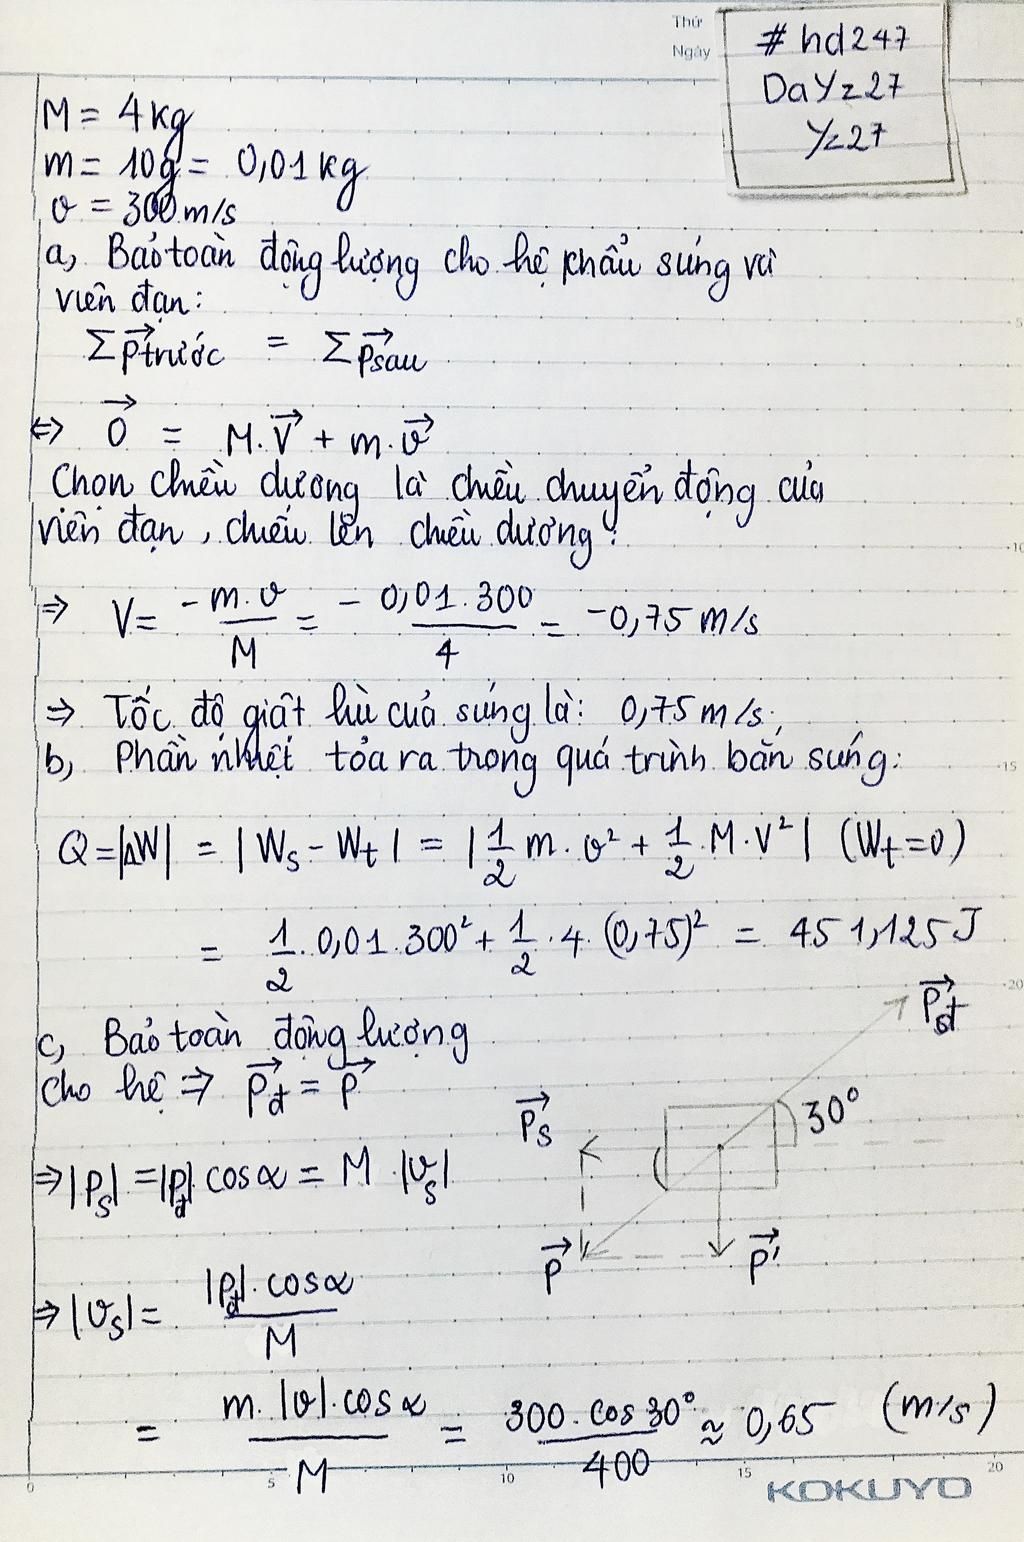 Thứ
Ngày
# hd247
DaYz27
Yz27
M = 4 kg
m = 10g = 0,01 kg
v = 300 m/s
a, Bảo toàn động lượng cho hệ khẩu súng và
viên đạn:
Σ p⃗trước = Σ p⃗sau
⇔ 0⃗ = M.V⃗ + m.v⃗
Chọn chiều dương là chiều chuyển động của
viên đạn, chiếu lên chiều dương:
⇒ V = -m.v/M = - 0,01.300/4 = -0,75 m/s
⇒ Tốc độ giật lùi của súng là: 0,75 m/s;
b, Phần nhiệt tỏa ra trong quá trình bắn súng:
Q = |ΔW| = |Ws - Wt| = |1/2 m.v² + 1/2.M.V²| (Wt=0)
= 1/2.0,01.300² + 1/2.4.(0,75)² = 451,125J
c, Bảo toàn động lượng
cho hệ ⇒ P⃗đ = P⃗
⇒ |Ps| = |Pđ| cosα = M.|vs|
⇒ |vs| = |Pđ|.cosα/M
= m.|v|.cosα/M = 300.cos30°/400 ≈ 0,65 (m/s)
P⃗đ
P⃗s
30°
P⃗
P⃗'
5
10
15
20
0
5
10
15
20
KOKUYO